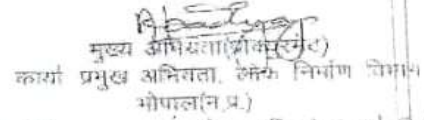 मुख्य अभियंता(प्रोक्यूरमेंट)
कार्या प्रमुख अभियंता, लोक निर्माण विभाग
भोपाल(म.प्र.)